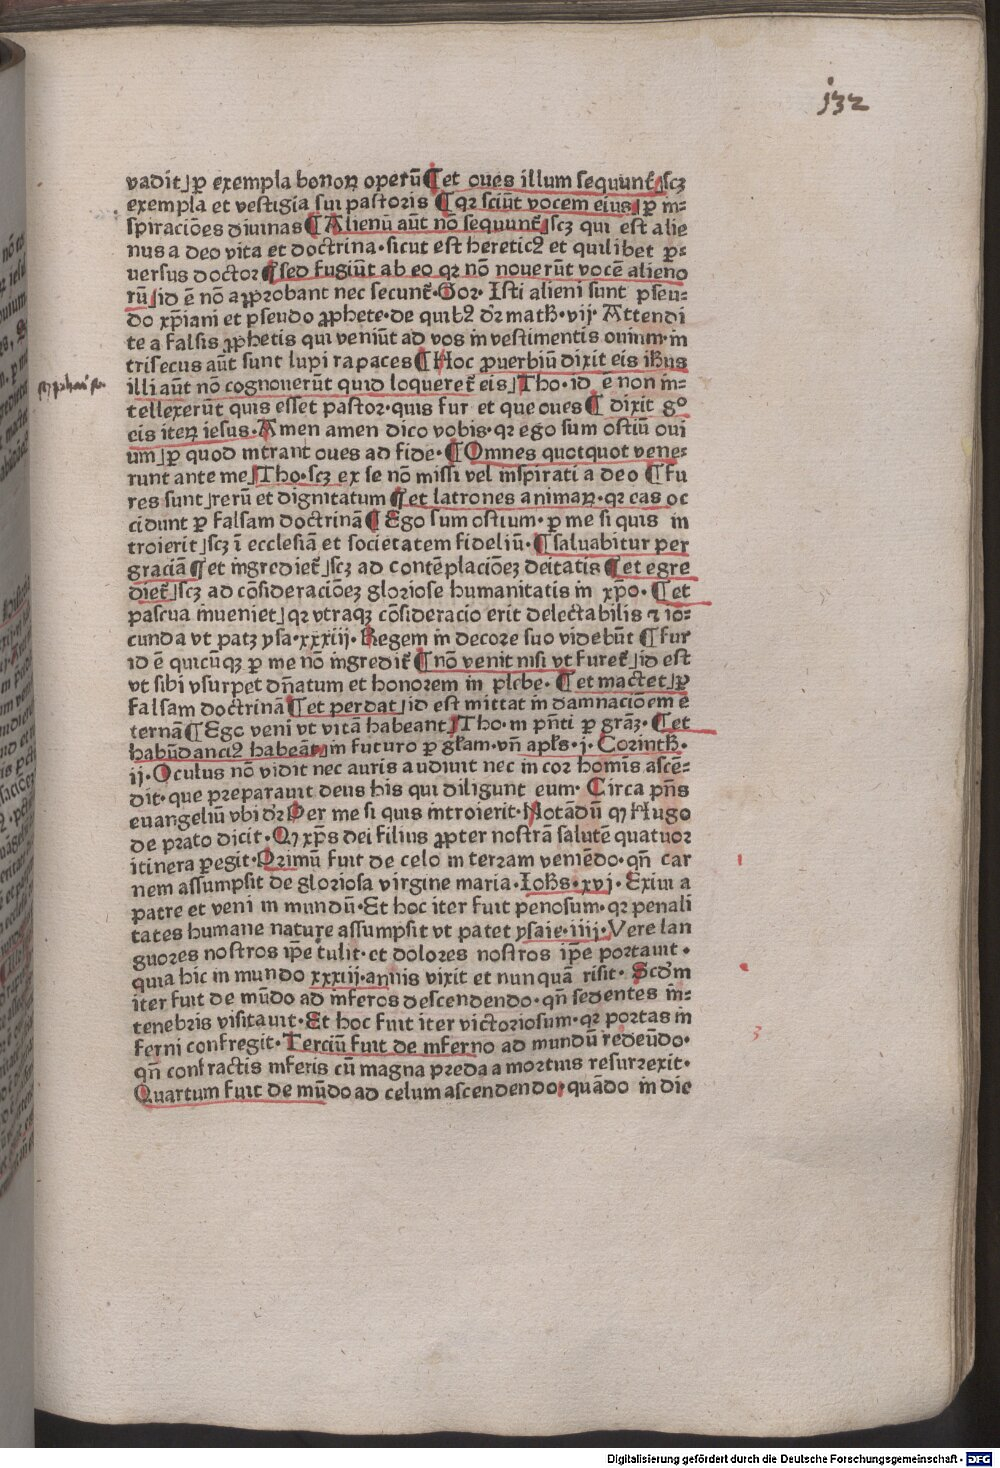 132
vadit⌋ ꝑ exempla bonoꝝ operū ¶ et oues illum sequunt᷑⌋ scꝫ
exempla et vestigia sui pastoris ¶ qꝛ sciūt vocem eius⌋ ꝑ in-
spiraciōes diuinas ¶ Alienū aūt nō sequunt᷑⌋ scꝫ qui est alie
nus a deo vita et doctrina· sicut est hereticꝰ et quilibet ꝑ-
uersus doctor ¶ sed fugiūt ab eo qꝛ nō nouerūt vocē alieno
rū⌋ id ē nō aꝓprobant nec secunt᷑· Gor· Isti alieni sunt pseu-
do xp̄iani et pseudo ꝓphete· de quibꝰ dꝛ math̄· vij· Attendi
te a falsis ꝓphetis qui veniūt ad vos in vestimentis ouium· in
trisecus aūt sunt lupi rapaces ¶ Hoc ꝓuerbiū dixit eis ih̄us
illi aūt nō cognouerūt quid loqueret᷑ eis⌋ Tho· id ē non in-
tellexerūt quis esset pastor· quis fur et que oues ¶ dixit gͦ
eis iteꝝ iesus· Amen amen dico vobis· qꝛ ego sum ostiū oui
um⌋ ꝑ quod intrant oues ad fidē· ¶ Omnes quotquot vene-
runt ante me⌋ Tho· scꝫ ex se nō missi vel inspirati a deo ¶ fu
res sunt⌋ rerū et dignitatum ¶ et latrones animaꝝ· qꝛ eas oc
cidunt ꝑ falsam doctrinā ¶ Ego sum ostium· ꝑ me si quis in
troierit⌋ scꝫ ī ecclesiā et societatem fideliū· ¶ saluabitur per
graciā ¶ et ingrediet᷑⌋ scꝫ ad contēplaciōeꝫ deitatis ¶ et egre
diet᷑⌋ scꝫ ad cōsideraciōeꝫ gloriose humanitatis in xp̄o· ¶ et
pascua inueniet⌋ qꝛ vtraqꝫ cōsideracio erit delectabilis ⁊ io-
cunda vt patꝫ ysa· xxxiij· Regem in decore suo videbūt ¶ fur
id ē quicūqꝫ ꝑ me nō ingredit᷑ ¶ nō venit nisi vt furet᷑⌋ id est
vt sibi vsurpet dn̄atum et honorem in plebe· ¶ et mactet⌋ ꝑ
falsam doctrinā ¶ et perdat⌋ id est mittat in damnaciōem e
ternā ¶ Ego veni vt vitā habeant⌋ Tho· in pn̄ti ꝑ grāꝫ· ¶ et
habūdanciꝰ habeāt⌋ in futuro ꝑ gl̄am· vn̄ apl̄s· j· Corinth̄·
ij· Oculus nō vidit nec auris audiuit nec in cor hominis ascē-
dit· que preparauit deus his qui diligunt eum· Circa pn̄s
euangeliū vbi dꝛ Per me si quis introierit· Notādū ꝙ Hugo
de prato dicit· Ꝙ xp̄s dei filius ꝓpter nostrā salutē quatuor
itinera ꝑegit· Primū fuit de celo in terram veniēdo· qn̄ car
nem assumpsit de gloriosa virgine maria· Ioh̄s· xvj· Exiui a
patre et veni in mundū· Et hoc iter fuit penosum· qꝛ penali
tates humane nature assumpsit vt patet ysaie· iiij· Vere lan
guores nostros ip̄e tulit· et dolores nostros ip̄e portauit ·
quia hic in mundo xxxiij· annis vixit et nunquā risit· Scd̄m
iter fuit de mūdo ad inferos descendendo· qn̄ sedentes in-
tenebris visitauit· Et hoc fuit iter victoriosum· qꝛ portas in
ferni confregit· Terciū fuit de inferno ad mundū redeūdo·
qn̄ confractis inferis cū magna preda a mortuis resurrexit·
Quartum fuit de mūdo ad celum ascendendo· quādo in die
Digitalisierung gefördert durch die Deutsche Forschungsgemeinschaft - DFG